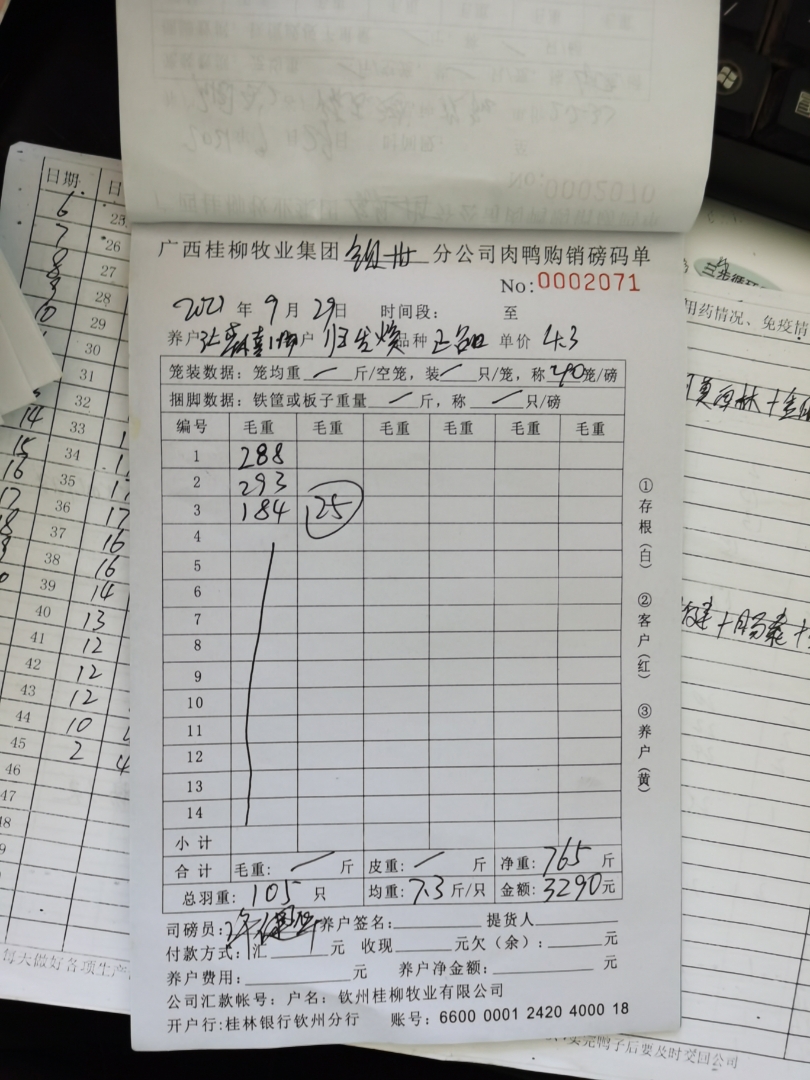 No:0002070
广西桂柳牧业集团钦州分公司肉鸭购销磅码单
No:0002071
2021年9月29日 时间段: 至
养户 户 品种正品 单价4.3
笼装数据:笼均重/斤/空笼,装/只/笼,称 笼/磅
捆脚数据:铁筐或板子重量/斤,称/只/磅
编号 毛重 毛重 毛重 毛重 毛重 毛重
1 288
2 293
3 184 25
4
5
6
7
8
9
10
11
12
13
14
小计
合计 毛重:/斤 皮重:/斤 净重:765斤
总羽重:105只 均重:7.3斤/只 金额:3290元
司磅员: 养户签名: 提货人
付款方式:汇 元 收现 元欠(余): 元
养户费用: 元 养户净金额: 元
公司汇款帐号:户名:钦州桂柳牧业有限公司
开户行:桂林银行钦州分行 账号:6600 0001 2420 4000 18
①存根(白) ②客户(红) ③养户(黄)
日期
6
7
8
9
10
14
15
16
17
18
25
26
27
28
29
30
31
32
33
34
35
36 17
37 16
38 16
39 14
40 13
41 12
42 12
43 12
44 10
45 2
46
47
48
每天做好各项生产
用药情况、免疫情
卖完鸭子后要及时交回公司